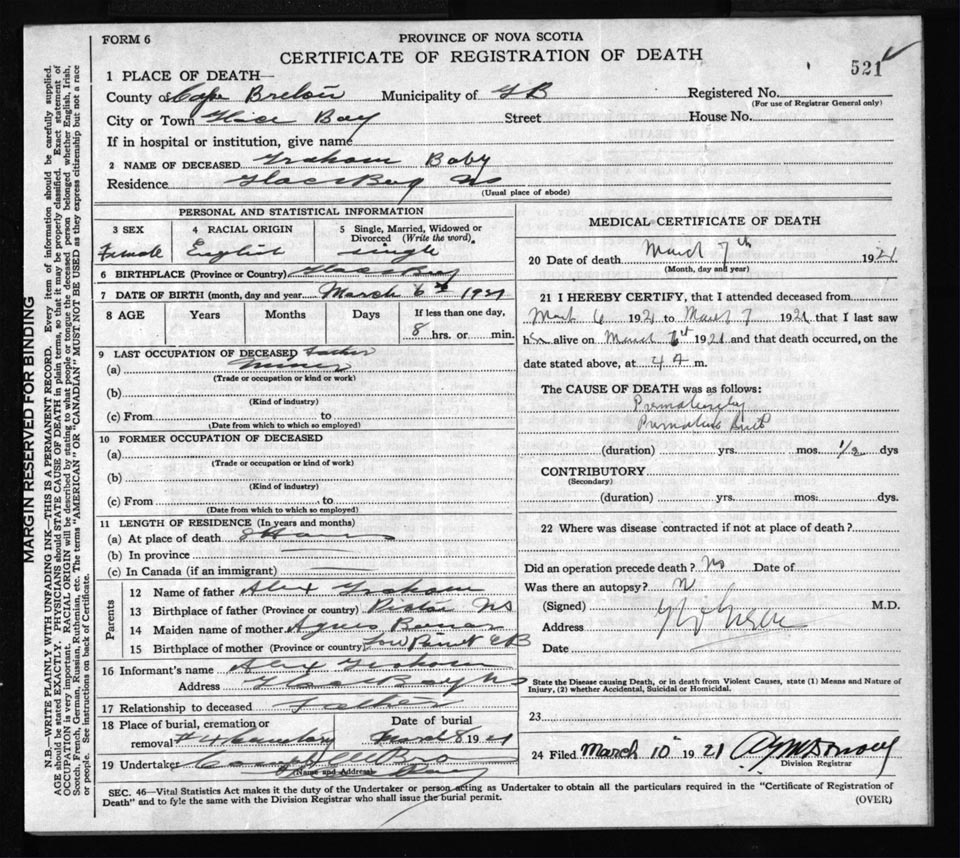 FORM 6
PROVINCE OF NOVA SCOTIA
CERTIFICATE OF REGISTRATION OF DEATH
521
1 PLACE OF DEATH—
County of Cape Breton Municipality of G B Registered No.
(For use of Registrar General only)
City or Town Glace Bay Street House No.
If in hospital or institution, give name
2 NAME OF DECEASED Graham Baby
Residence Glace Bay NS
(Usual place of abode)
PERSONAL AND STATISTICAL INFORMATION
3 SEX 4 RACIAL ORIGIN 5 Single, Married, Widowed or Divorced (Write the word).
Female English single
6 BIRTHPLACE (Province or Country) Glace Bay
7 DATE OF BIRTH (month, day and year) March 6th 1921
8 AGE Years Months Days If less than one day,
8 hrs. or min.
9 LAST OCCUPATION OF DECEASED Father
(a) Miner
(Trade or occupation or kind or work)
(b)
(Kind of industry)
(c) From to
(Date from which to which so employed)
10 FORMER OCCUPATION OF DECEASED
(a)
(Trade or occupation or kind of work)
(b)
(Kind of industry)
(c) From to
(Date from which to which so employed)
11 LENGTH OF RESIDENCE (In years and months)
(a) At place of death 8 Hours
(b) In province
(c) In Canada (if an immigrant)
Parents
12 Name of father Alex Graham
13 Birthplace of father (Province or country) Pictou NS
14 Maiden name of mother Agnes
15 Birthplace of mother (Province or country) Low Point C B
16 Informant's name Alex Graham
Address Glace Bay NS
17 Relationship to deceased Father
18 Place of burial, cremation or removal Cemetery
Date of burial March 8 1921
19 Undertaker
(Name and Address)
MEDICAL CERTIFICATE OF DEATH
20 Date of death March 7th 1921
(Month, day and year)
21 I HEREBY CERTIFY, that I attended deceased from
March 6 1921 to March 7 1921 that I last saw
h alive on March 1921 and that death occurred, on the
date stated above, at 4 A m.
The CAUSE OF DEATH was as follows:
Prematurity
Premature Birth
(duration) yrs. mos. 1/2 dys
CONTRIBUTORY
(Secondary)
(duration) yrs. mos. dys.
22 Where was disease contracted if not at place of death?
Did an operation precede death? No Date of
Was there an autopsy? N
(Signed) M.D.
Address
Date
State the Disease causing Death, or in death from Violent Causes, state (1) Means and Nature of
Injury, (2) whether Accidental, Suicidal or Homicidal.
23
24 Filed March 10 1921
Division Registrar
SEC. 46—Vital Statistics Act makes it the duty of the Undertaker or person acting as Undertaker to obtain all the particulars required in the "Certificate of Registration of
Death" and to fyle the same with the Division Registrar who shall issue the burial permit.
(OVER)
MARGIN RESERVED FOR BINDING
N.B.—WRITE PLAINLY WITH UNFADING INK—THIS IS A PERMANENT RECORD. Every item of information should be carefully supplied.
AGE should be stated EXACTLY. PHYSICIANS should STATE CAUSE OF DEATH in plain terms, so that it may be properly classified. Exact statement of
OCCUPATION is very important. RACIAL ORIGIN will be described by stating to what people or tongue the deceased person belonged whether English, Irish,
Scotch, French, German, Russian, Ruthenian, etc. The terms "AMERICAN" OR "CANADIAN" MUST NOT BE USED as they express citizenship but not a race
or people. See instructions on back of Certificate.